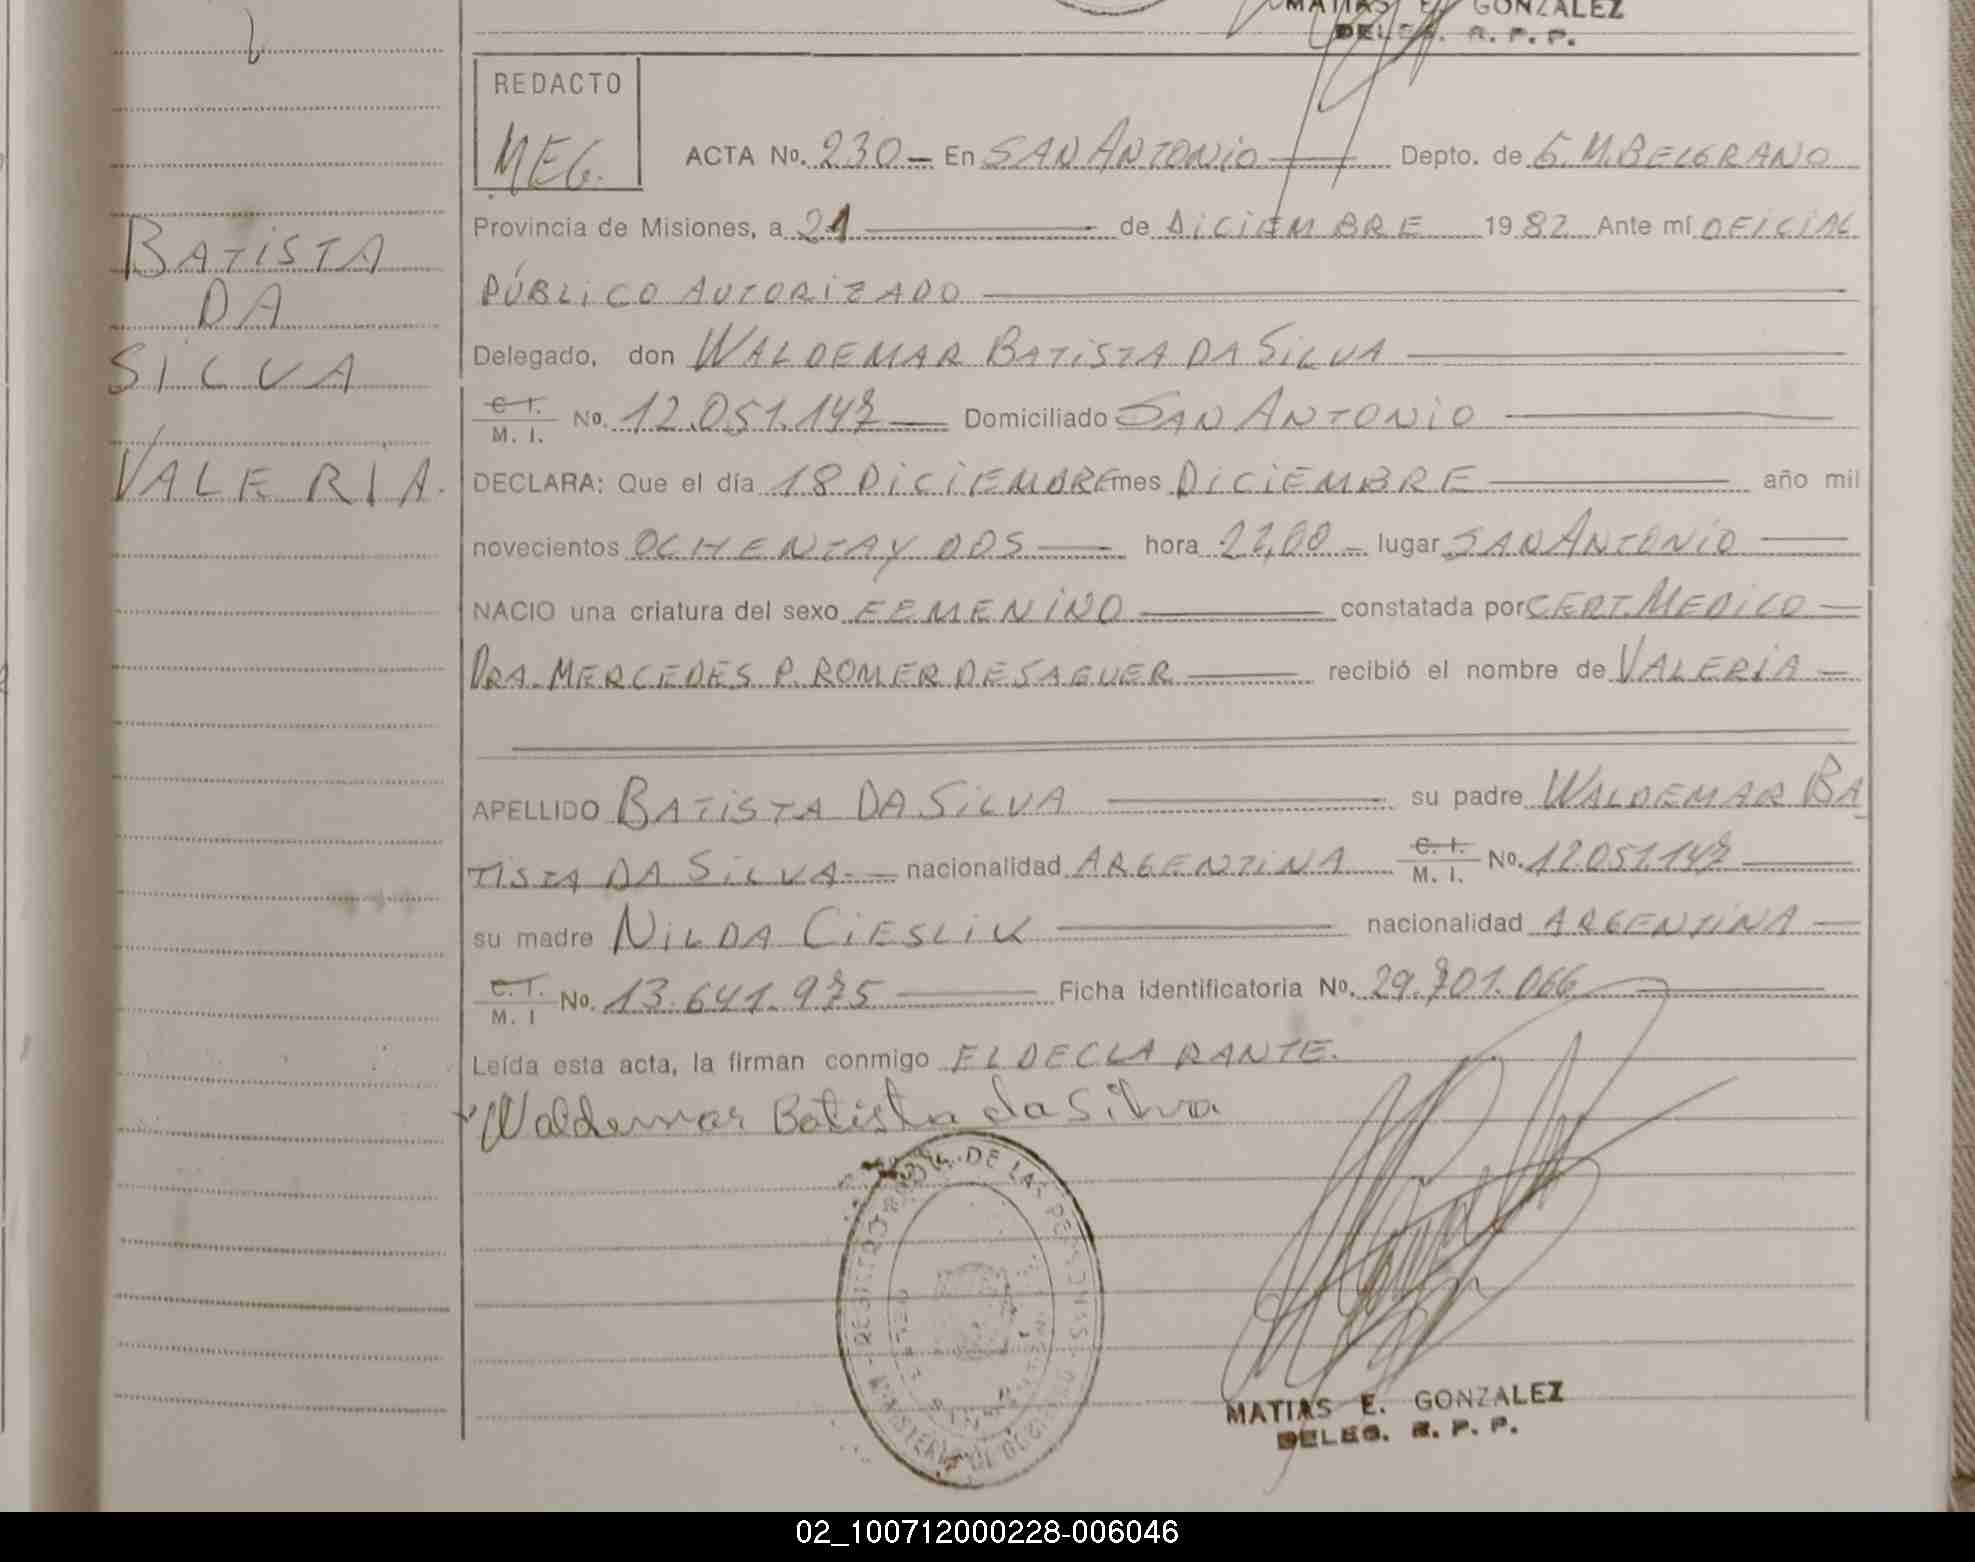 MATIAS E. GONZALEZ
DELEG. R. P. P.
REDACTO
MEG.
ACTA No. 230 - En SAN ANTONIO Depto. de G. M. BELGRANO
BATISTA
DA
SILVA
VALERIA.
Provincia de Misiones, a 21 de DICIEMBRE 1982 Ante mí OFICIAL
PÚBLICO AUTORIZADO
Delegado, don WALDEMAR BATISTA DA SILVA
C. I. / M. I. No. 12.051.147 Domiciliado SAN ANTONIO
DECLARA: Que el día 18 DICIEMBRE mes DICIEMBRE año mil
novecientos OCHENTA Y DOS hora 22,00 lugar SAN ANTONIO
NACIO una criatura del sexo FEMENINO constatada por CERT. MEDICO
DRA. MERCEDES P. ROMER DE SAGUER recibió el nombre de VALERIA
APELLIDO BATISTA DA SILVA su padre WALDEMAR BA
TISTA DA SILVA nacionalidad ARGENTINA C. I. / M. I. No. 12.051.147
su madre NILDA CIESLIK nacionalidad ARGENTINA
C. I. / M. I No. 13.641.975 Ficha identificatoria No. 29.701.066
Leída esta acta, la firman conmigo EL DECLARANTE.
Waldemar Batista da Silva
REGISTRO DE LAS PERSONAS
MINISTERIO DE GOBIERNO
MATIAS E. GONZALEZ
DELEG. R. P. P.
02_100712000228-006046